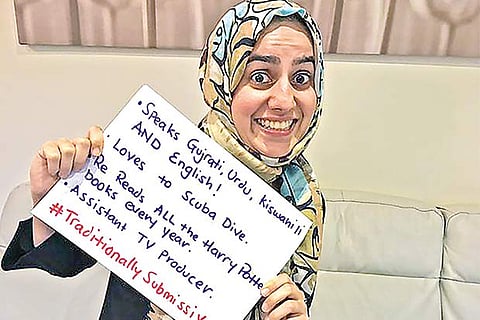 • Speaks Gujrati, Urdu, Kiswahili
AND English!
• Loves to Scuba Dive.
• Re Reads ALL the Harry Potte
books every year.
• Assistant TV Producer.
#Traditionally Submissiv